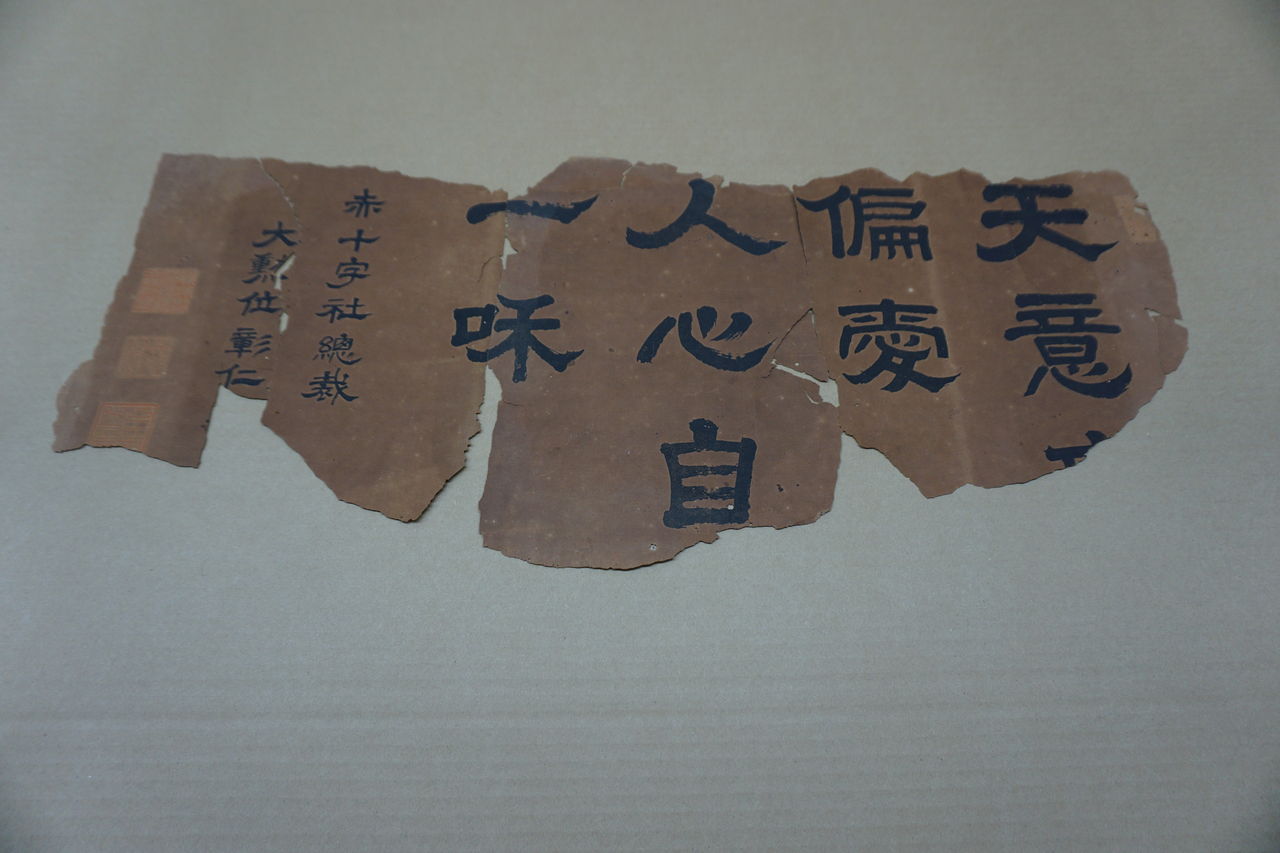 天意
偏愛
人心自
一味
赤十字社總裁
大勲位彰仁